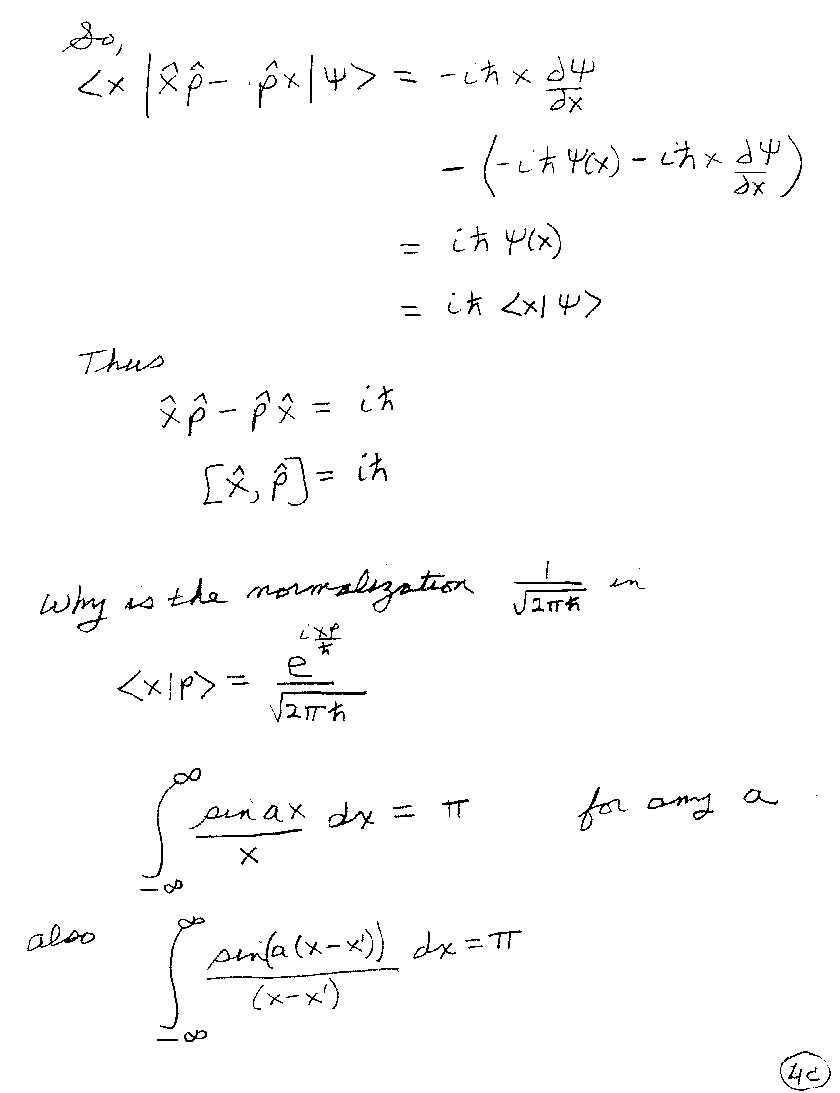 So,
<x|x̂p̂ - p̂x|Ψ> = -iħ x ∂Ψ/∂x
- (-iħ Ψ(x) - iħ x ∂Ψ/∂x)
= iħ Ψ(x)
= iħ <x|Ψ>
Thus
x̂p̂ - p̂x̂ = iħ
[x̂, p̂] = iħ
Why is the normalization 1/√(2πħ) in
<x|p> = e^(ixp/ħ)/√(2πħ)
∫_{-∞}^{∞} sin ax / x dx = π for any a
also ∫_{-∞}^{∞} sin(a(x-x'))/(x-x') dx = π
4c